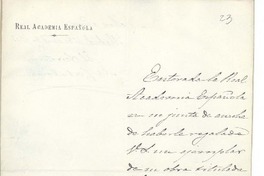 23
REAL ACADEMIA ESPAÑOLA
Enterada la Real
Academia Española
en su junta de anoche
de haber regalado
V. S. un ejemplar
de su obra titulada